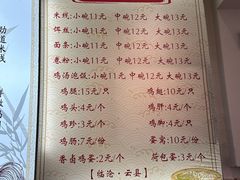 米线:小碗11元 中碗12元 大碗13元
饵丝:小碗11元 中碗12元 大碗13元
面条:小碗11元 中碗12元 大碗13元
卷粉:小碗11元 中碗12元 大碗13元
鸡汤泡饭:小碗11元 中碗12元 大碗13元
鸡腿:15元/只 鸡翅:10元/只
鸡头:4元/个 鸡胗:2元/个
鸡珍:3元/个 鸡脚:4元/只
鸡肠:7元/份 蛋窝:10元/份
香卤鸡蛋:2元/个 荷包蛋:3元/个
【临沧·云县】
劲道米线